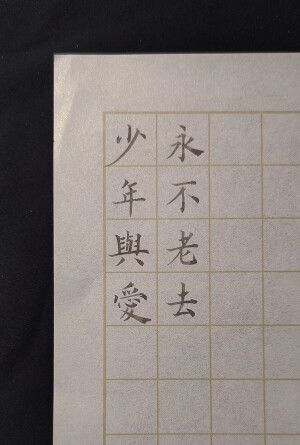 少年與愛
永不老去